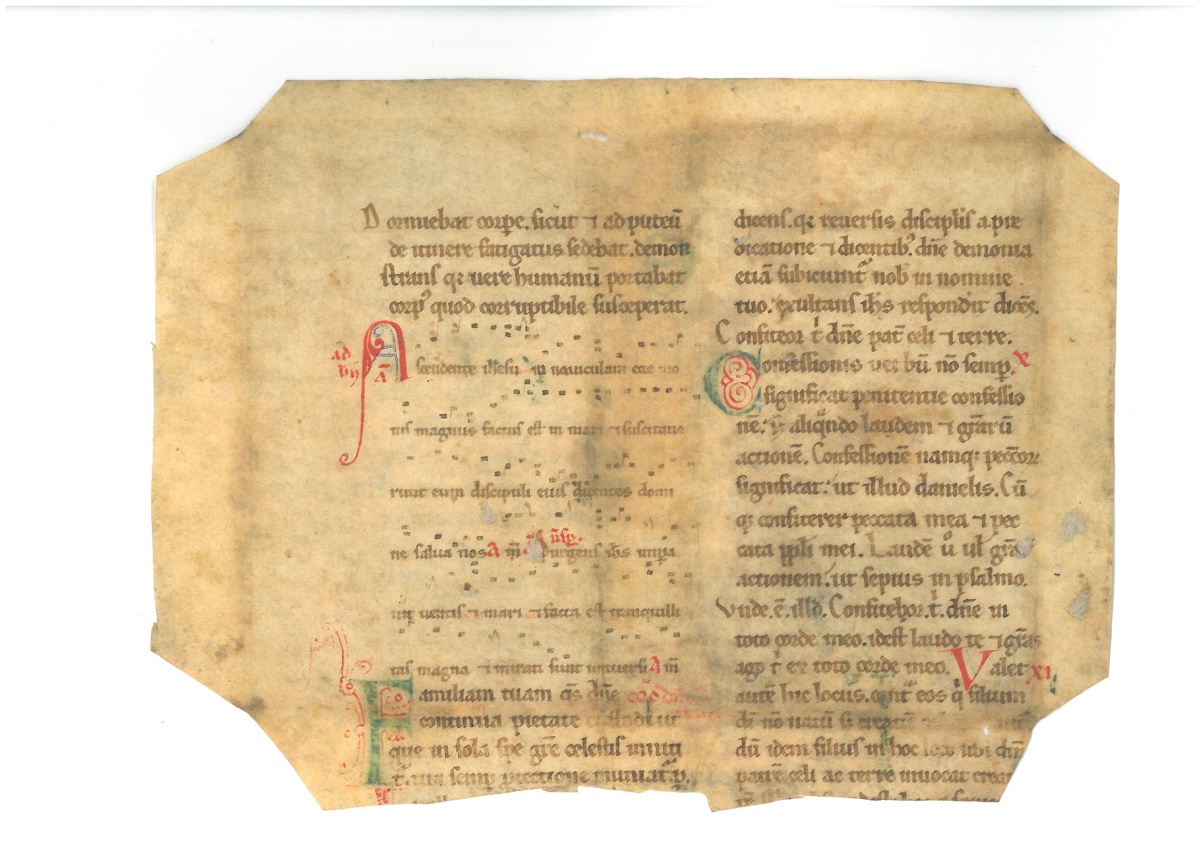 Dormiebat corꝑe. sicut ⁊ ad puteū
de itinere fatigatus sedebat. demon
strans qꝛ uere humanū portabat
corpꝰ quod corruptibile susceperat.
ad bn̄ a᷒
Ascendente ihesu in nauiculam ecce mo
tus magnus factus est in mari ⁊ suscitaue
runt eum discipuli eius dicentes domi
ne salua nos
Surgens ihs impa
uit uentis ⁊ mari ⁊ facta est tranquilli
tas magna ⁊ mirati sunt uniuersi A m̄
Familiam tuam q̄s dn̄e
continua pietate custodi ut
que in sola spe gr̄e celestis initi
tua semꝑ ꝓtectione muniat᷑.
dicens. qꝛ reuersis discipulis a pre
dicatione ⁊ dicentibꝰ. dn̄e demonia
etiā subiciunt᷑ nob̄ in nomine
tuo. exultans ih̄s respondit dicēs.
Confiteor t̄ dn̄e pat̄ celi ⁊ terre.
Confessionis uerbū nō semꝑ X
significat penitentie confessio
nē. ꝩ aliqn̄do laudem ⁊ gr̄arū
actionē. Confessionē namqꝫ peccc̄oꝝ
significat. ut illud danielis. Cū
qꝫ confiterer peccata mea ⁊ pec
cata ppl̓i mei. Laudē u̓o ul̓ gr̄a
actionem. ut sepius in psalmo.
Vnde. ē. illd̓. Confitebor. t̄. dn̄e in
toto corde meo. idest laudo te ⁊ gr̄as
ago t̓ ex toto corde meo. Valet XI
autē hic locus. contᷓ eos q̓ filium
di̓ nō natū s; creatū
dū idem filius in hoc loco ubi dn̄m
patrē celi ac terre inuocat